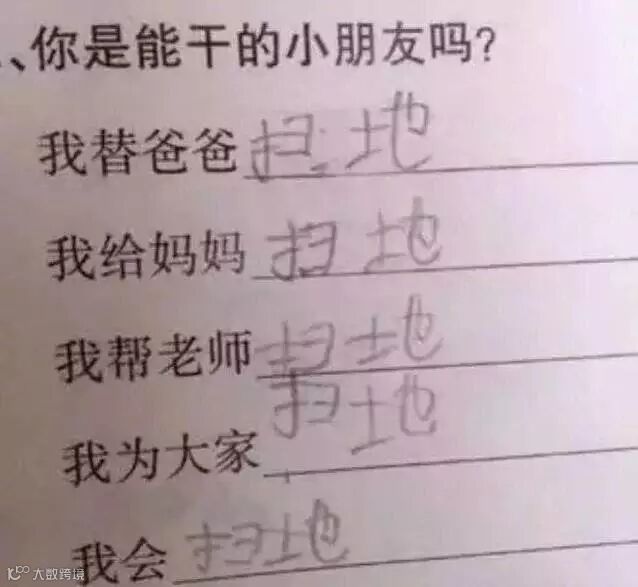 、你是能干的小朋友吗?
我替爸爸扫地
我给妈妈扫地
我帮老师扫地
我为大家扫地
我会扫地
大数跨境